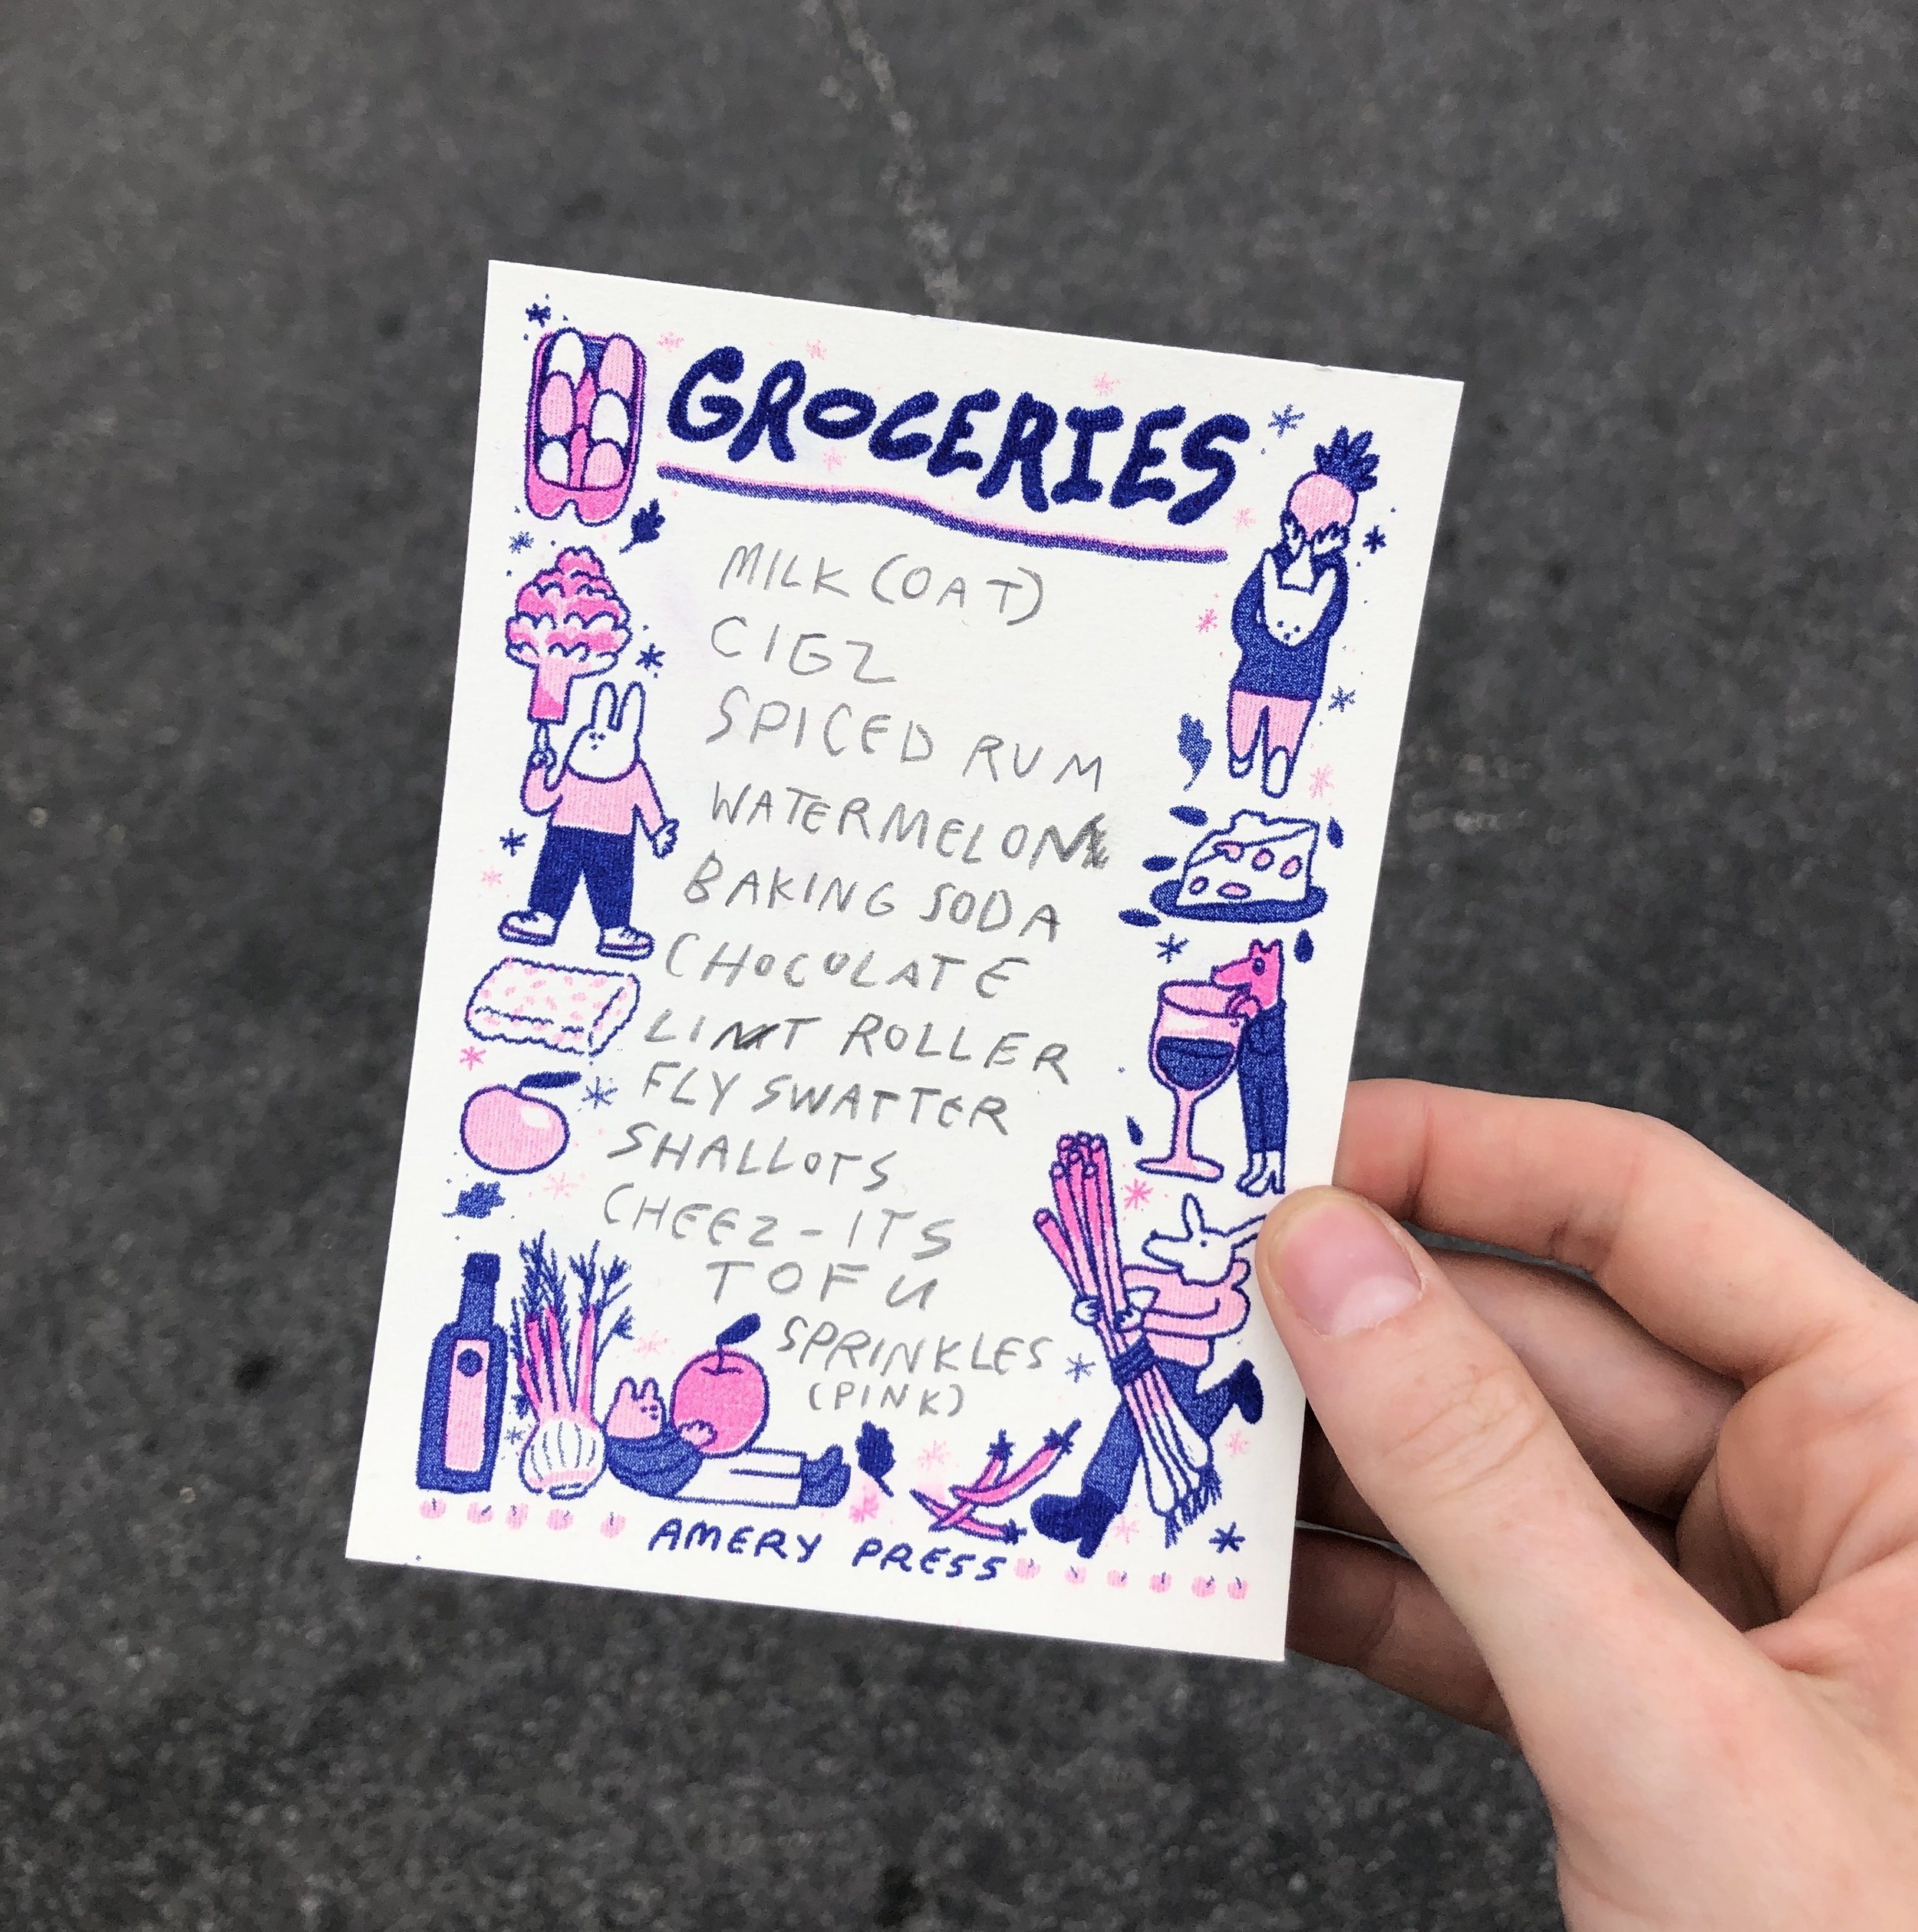 GROCERIES
MILK (OAT)
CIGZ
SPICED RUM
WATERMELON
BAKING SODA
CHOCOLATE
LINT ROLLER
FLY SWATTER
SHALLOTS
CHEEZ-ITS
TOFU
SPRINKLES
(PINK)
AMERY PRESS